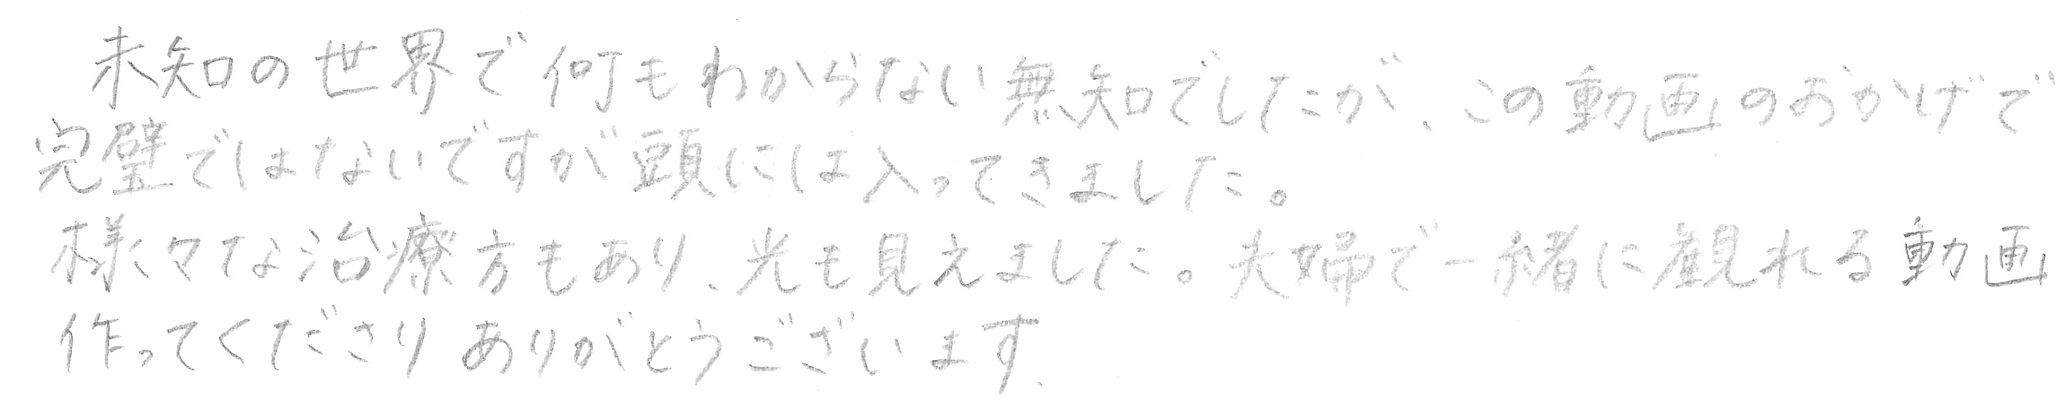 未知の世界で何もわからない無知でしたが、この動画のおかげで
完璧ではないですが頭には入ってきました。
様々な治療方もあり、光も見えました。夫婦で一緒に観れる動画
作ってくださりありがとうございます.